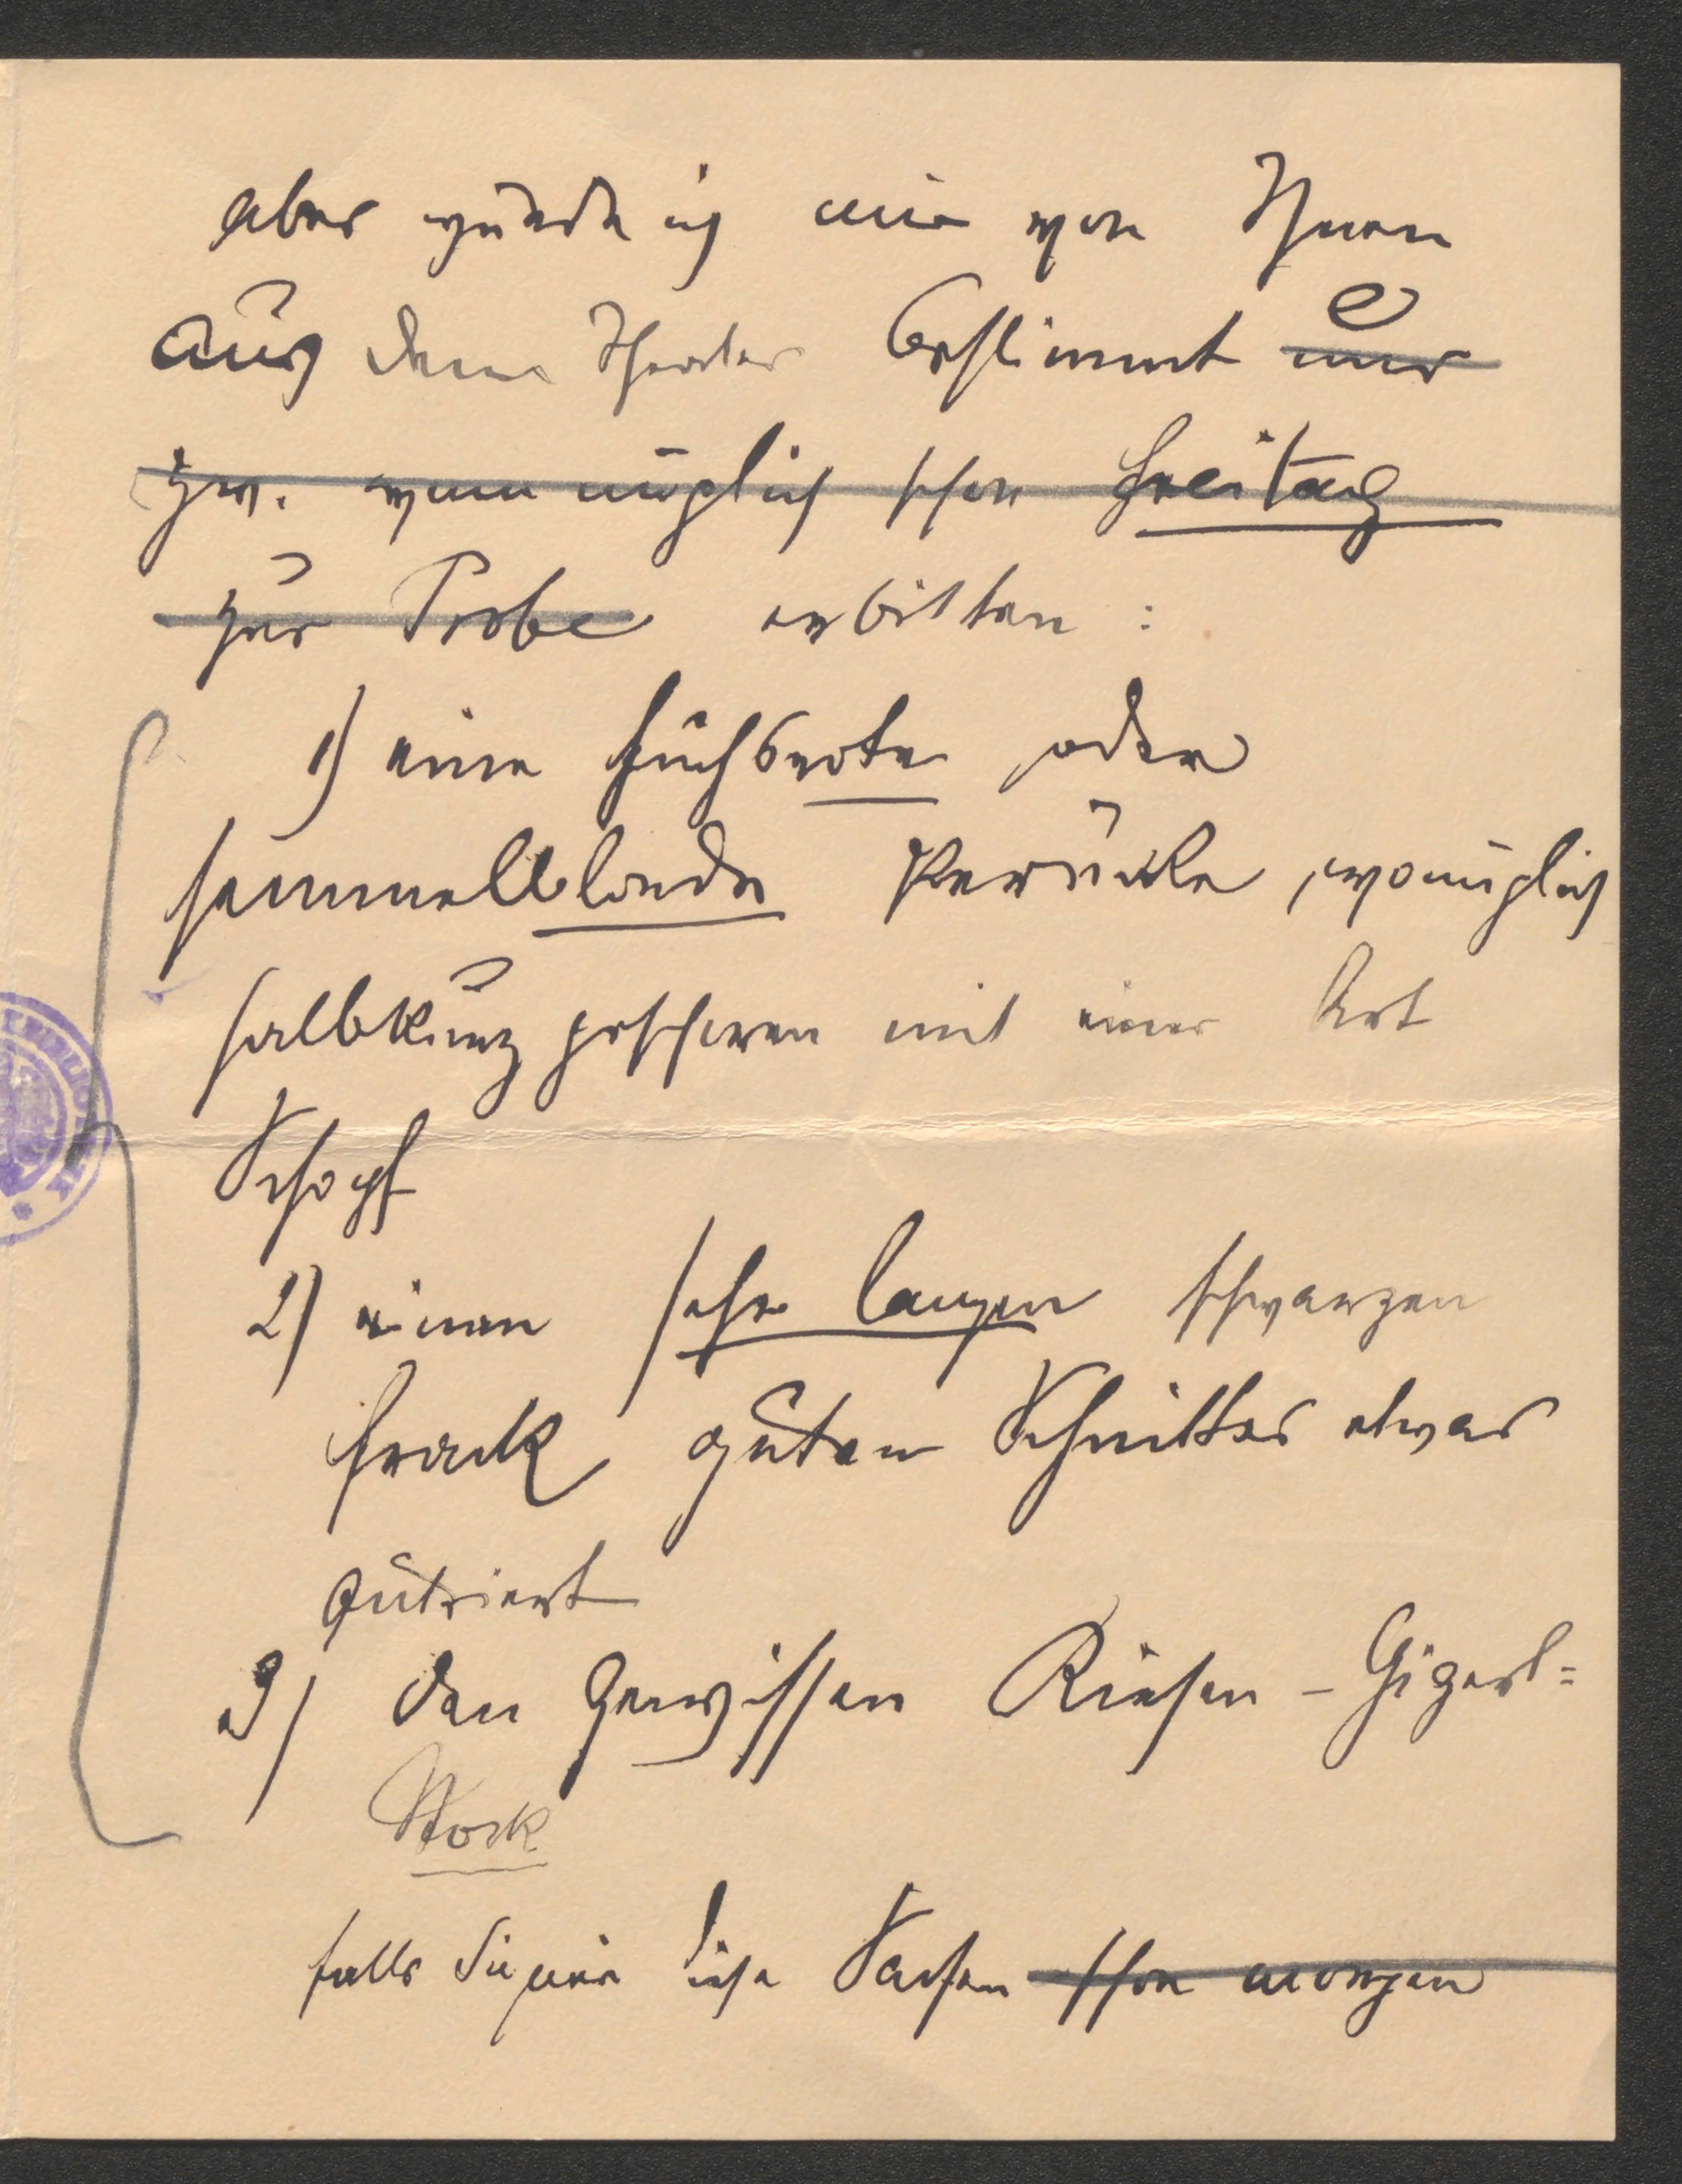 aber würde ich mir von Ihnen
aus dem Theater bestimmt und
zw. womöglich schon Freitag
zur Probe erbitten :
1) eine fuchsrote oder
semmelblonde Perücke, womöglich
halbkurz geschoren mit einer Art
Schopf
2) einen sehr langen schwarzen
Frack guten Schnittes etwas
outriert
3) den gewissen Riesen-Gigerl=
Stock
falls Sie mir diese Sachen schon morgen